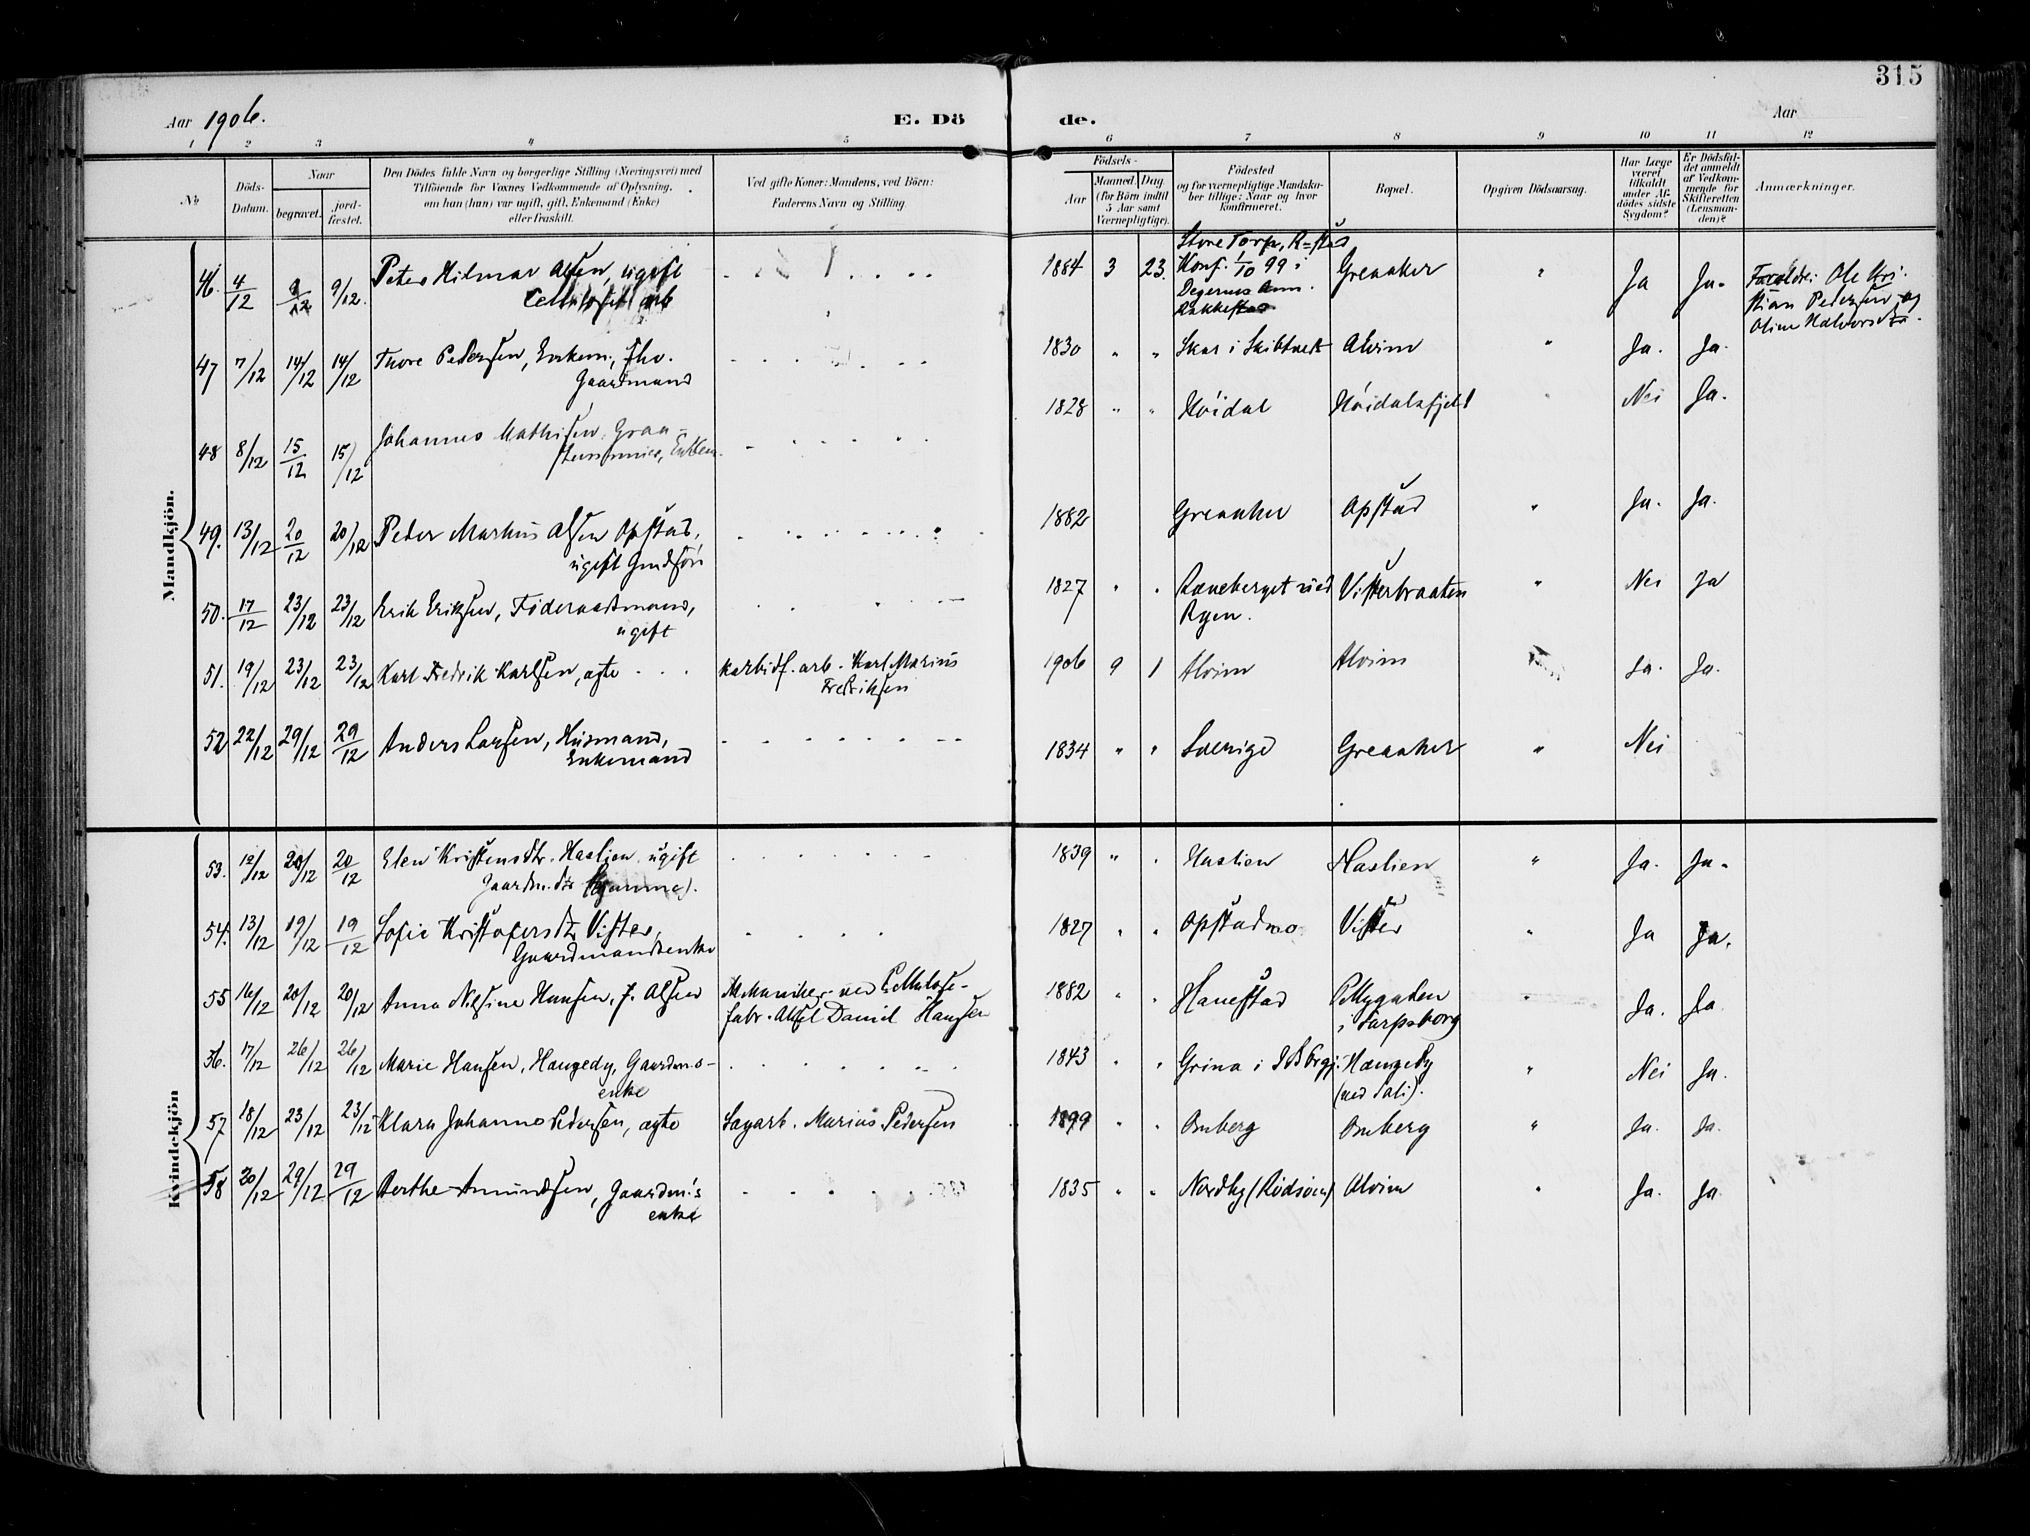 315
Aar 1906. E. Dö de. Aar
1 2 3 4 5 6 7 8 9 10 11 12
No
Döds-Datum.
Naar
begravet.
jord-fæstet.
Den Dödes fulde Navn og borgerlige Stilling (Næringsvei) med
Tilföiende for Voxnes Vedkommende af Oplysning,
om han (hun) var ugift, gift, Enkemand (Enke)
eller fraskilt.
Ved gifte Koner: Mandens, ved Börn:
Faderens Navn og Stilling.
Födsels-
Aar
Maaned Dag
(for Börn indtil
5 Aar samt
Værnepligtige).
Födested
og for værnepligtige Mandska-
ber tillige: Naar og hvor
konfirmeret.
Bopæl.
Opgiven Dödsaarsag.
Har Læge
været
tilkaldt
under Af-
dödes sidste
Sygdom?
Er Dödsfal-
det anmeldt
af Vedkom-
mende for
Skifteretten
(Lensman-
den)?
Anmærkninger.
Mandkjön.
46 4/12 9/12 9/12. Peter Hilmar Olsen, ugift
Cellulosef. arb
1884 3 23. Store Torp, R=stad
Konf. 1/10 99 i
Degernes Ann.
Rakkestad
Greaaker " Ja Ja. Forældre: Ole Kri-
stian Pedersen og
Oline Halvorsdtr.
47 7/12 14/12 14/12 Thore Pedersen, Enkem., fhv.
Gaardmand
1830 " " Skar i Skibtvedt Alvim " Ja. Ja.
48 8/12 15/12 15/12 Johannes Mathisen, Graa-
Enkem.
1828 " " Höidal Höidalsfjeld " Nei Ja.
49. 13/12 20/12 20/12 Peder Markus Olsen Opstad,
ugift Grdsön
1882 Greaaker Opstad " Ja. Ja.
50. 17/12 23/12 23/12 Erik Eriksen, Föderaadsmand,
ugift
1827 " " Ræveberget ved
Ryen.
Visterbraaten " Nei Ja
51. 19/12 23/12 23/12 Karl Fredrik Karlsen, ægte Karbidf. arb. Karl Marius
Fredriksen
1906 9 1 Alvim Alvim Ja. Ja.
52 22/12 29/12 29/12 Anders Larsen, Husmand,
Enkemand
1834 " " Sverige Greaaker " Nei
Kvindekjön
53. 12/12 20/12 20/12 Elen Kristensdtr. Haslien ugift
Gaardm.dtr.
1839 " " Haslien Haslien " Ja. Ja.
54. 13/12 19/12 19/12 Sofie Kristofersdtr. Vister,
Gaardmandsenke
1827 " " Opstadmo Vister " Ja Ja.
55 16/12 20/12 20/12 Anna Nilsine Hansen, f. Olsen Mekaniker ved Cellulose-
fabr. Axel Daniel Hansen
1882 " " Hanestad
i Sarpsborg
" Ja. Ja
56. 17/12 26/12 26/12 Marie Hansen, Hængedy, Gaardm.-
enke
1843 " " Grina i Idd Hængedy
" Nei Ja.
57 18/12 23/12 23/12 Klara Johanne Pedersen, ægte Sagarb. Marius Pedersen
1899 " " Omberg Omberg " Ja. Ja.
58 20/12 29/12 29/12 Berthe Amundsen, Gaardm's
enke
1835 " " Nordby (Rödsöen) Alvim " Ja. Ja